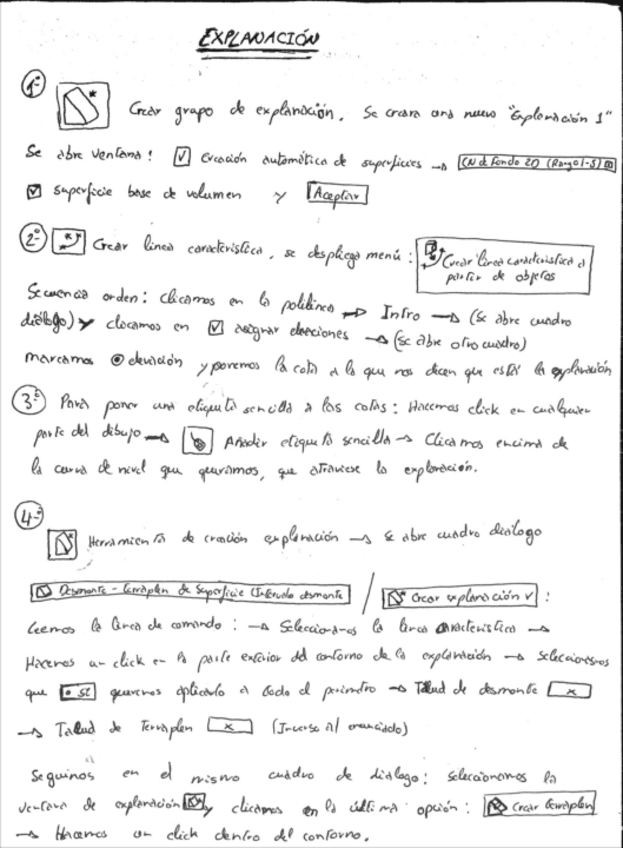 EXPLANACIÓN
1º Crear grupo de explanación. Se creara una nueva "Explanación 1"
Se abre ventana: Creación automática de superficies → (N d. Fondo 2D (Rayo 1-S)
Superficie base de volumen y Aceptar
2º Crear línea característica, se despliega menú: Crear línea característica a
partir de objetos
Secuencia orden: Clicamos en la polilínea → Intro → (Se abre cuadro
diálogo) y clicamos en asignar elevaciones → (se abre otro cuadro)
marcamos elevación y ponemos la cota a la que nos dicen que está la explanación
3º Para poner una etiqueta sencilla a las cotas: Hacemos click en cualquier
parte del dibujo → Añadir etiqueta sencilla → Clicamos encima de
la curva de nivel que queramos, que atraviese la explanación.
4º
Herramienta de creación explanación → Se abre cuadro diálogo
Desmonte - terraplen de Superficie (Intervalo desmonte / Crear explanación v :
Leemos la línea de comando : → Seleccionamos la línea característica →
Hacemos un click en la parte exterior del contorno de la explanación → seleccionamos
que si queremos aplicarlo a todo el perímetro → Talud de desmonte x
→ Talud de Terraplen x (Inverso al enunciado)
Seguimos en el mismo cuadro de diálogo: seleccionamos la
ventana de explanación y clicamos en la última opción : Crear terraplen
→ Hacemos un click dentro del contorno.